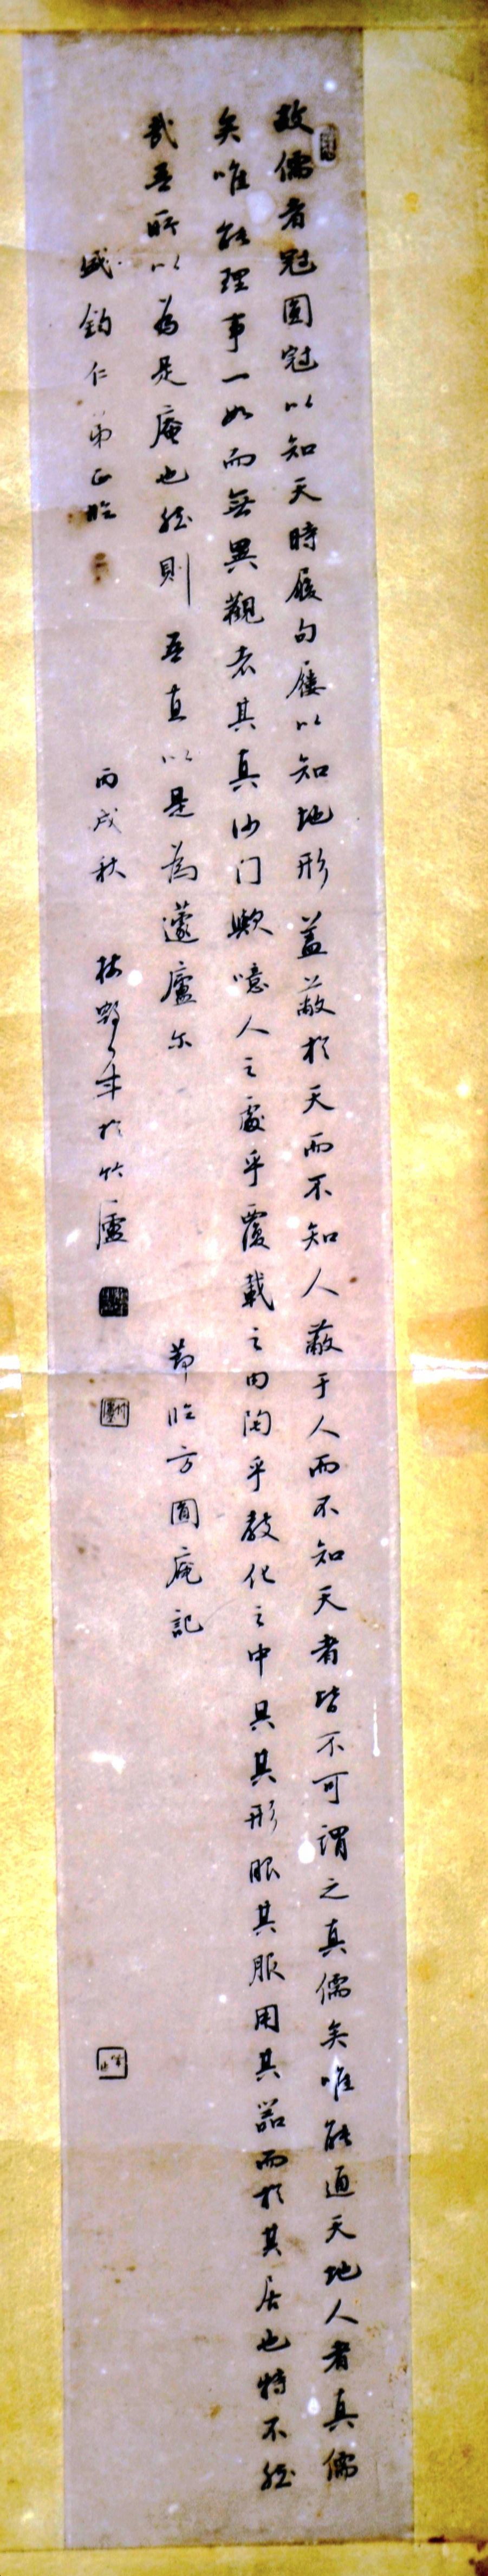 故儒者冠圆冠以知天時履句屦以知地形盖蔽於天而不知人蔽于人而不知天者皆不可謂之真儒矣唯能通天地人者真儒
矣唯能理事一如而無異觀者其真沙门歟噫人之處乎覆載之内陶乎教化之中具其形服其服用其器而於其居也特不然
哉吾所以為是庵也然則吾直以是為蘧廬尔
節臨方圓庵記
盛鈞仁弟正臨
丙戌秋 於竹廬